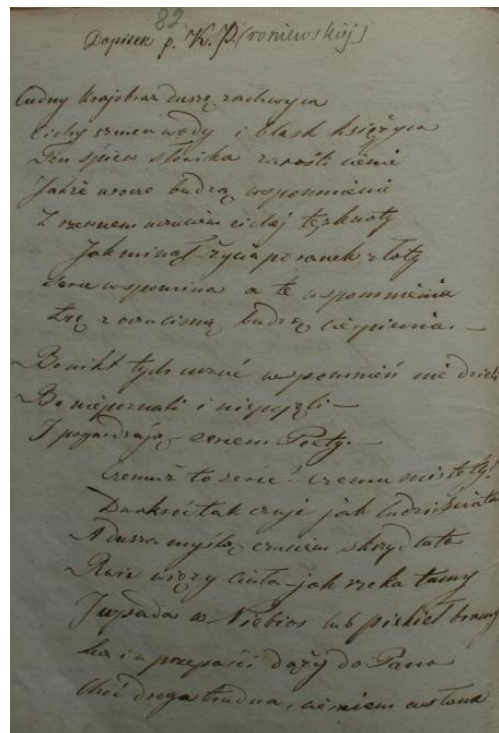 82
Dopisek p. K. P.(roniewskiej)
Cudny krajobraz duszę zachwyca
Cichy szmer wody i blask księżyca
Ten śpiew słowika zarośli cienie
Jakże urocze budzą wspomnienie
Z rzewnem uczuciem cichej tęsknoty
Jak minął życia poranek złoty
Serce wspomina a te wspomnienia
Łzę z budzą cierpienia. —
Bo nikt tych uczuć wspomnień nie dzieli
Bo niepoznali i niepojęli —
I pogardzają sercem Poety. —
Czemuż to serce! czemu niestety!
Dwakroć tak czuje jak ludzi świata
A dusza myślą, czuciem skrzydlata
Rwie więzy ciała jak rzeka tamy
I wpada w Niebios lub piekieł bramy
Lecz i w przepaści dąży do Pana
Choć droga trudna, cierniem usłana